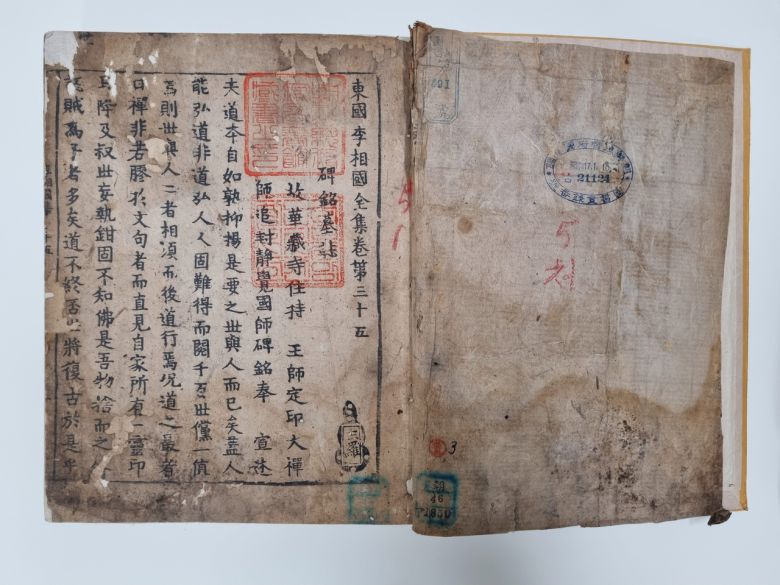 東國李相國全集卷第三十五
碑銘墓誌
故華藏寺住持 王師定印大禪
師追封靜覺國師碑銘奉 宣述
夫道本自如孰抑揚是要之世與人而已矣盖人
能弘道非道弘人人固難得而閱千百世僅一值
焉則世與人二者相須而後道行焉况道之最者
曰禪非若膠於文句者而直見自家所有一靈印
降及叔世妄執鉗固不知佛是吾物捨而之
賊爲子者多矣道不終否必將復古於是乎
21124
5
3
46